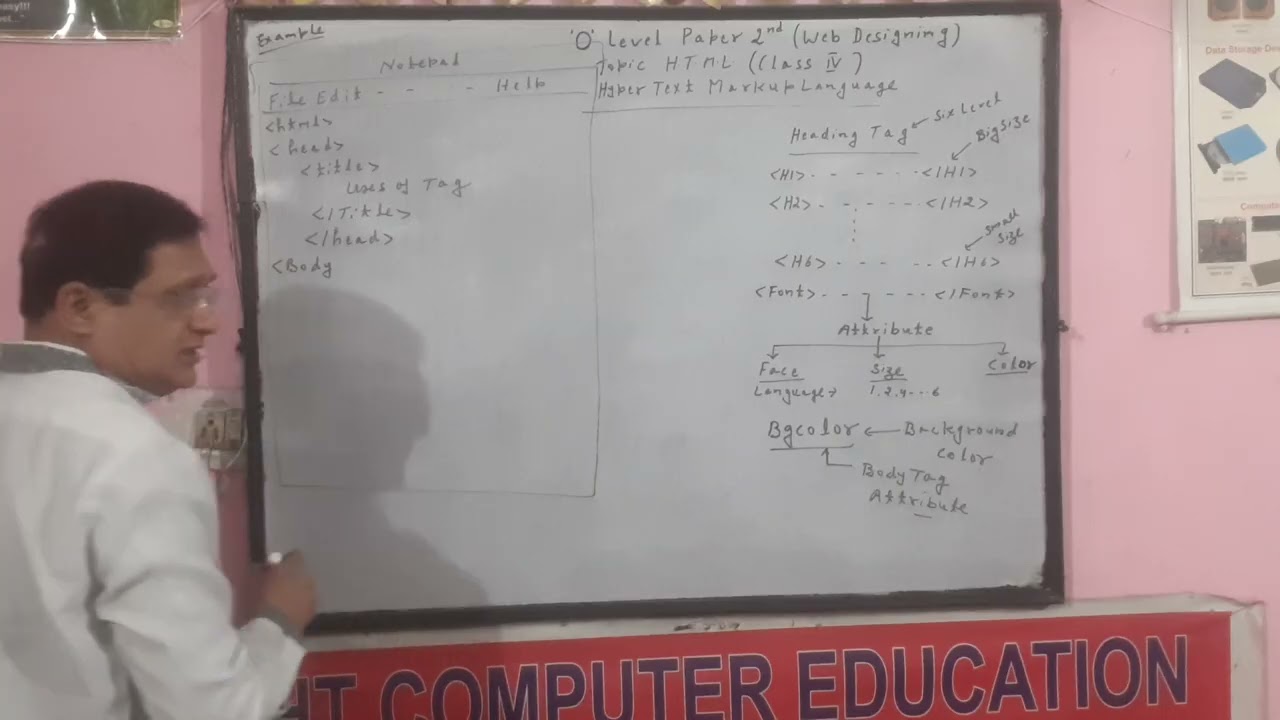 Example
'O' Level Paper 2nd (Web Designing)
Topic HTML (Class IV)
Hyper Text Markup Language
Notepad
File Edit - - - Help
<html>
<head>
<title>
Uses of Tag
</Title>
</head>
<Body
Heading Tag
Six Level
Big Size
<H1> - - - - - </H1>
<H2> - - - - </H2>
Small
Size
<H6> - - - - - </H6>
<Font> - - - - - </Font>
Attribute
Face Size Color
Language 1,2,4...6
Bgcolor ← Background
Color
Body Tag
Attribute
HT COMPUTER EDUCATION
Data Storage De
Compute
asy!!!